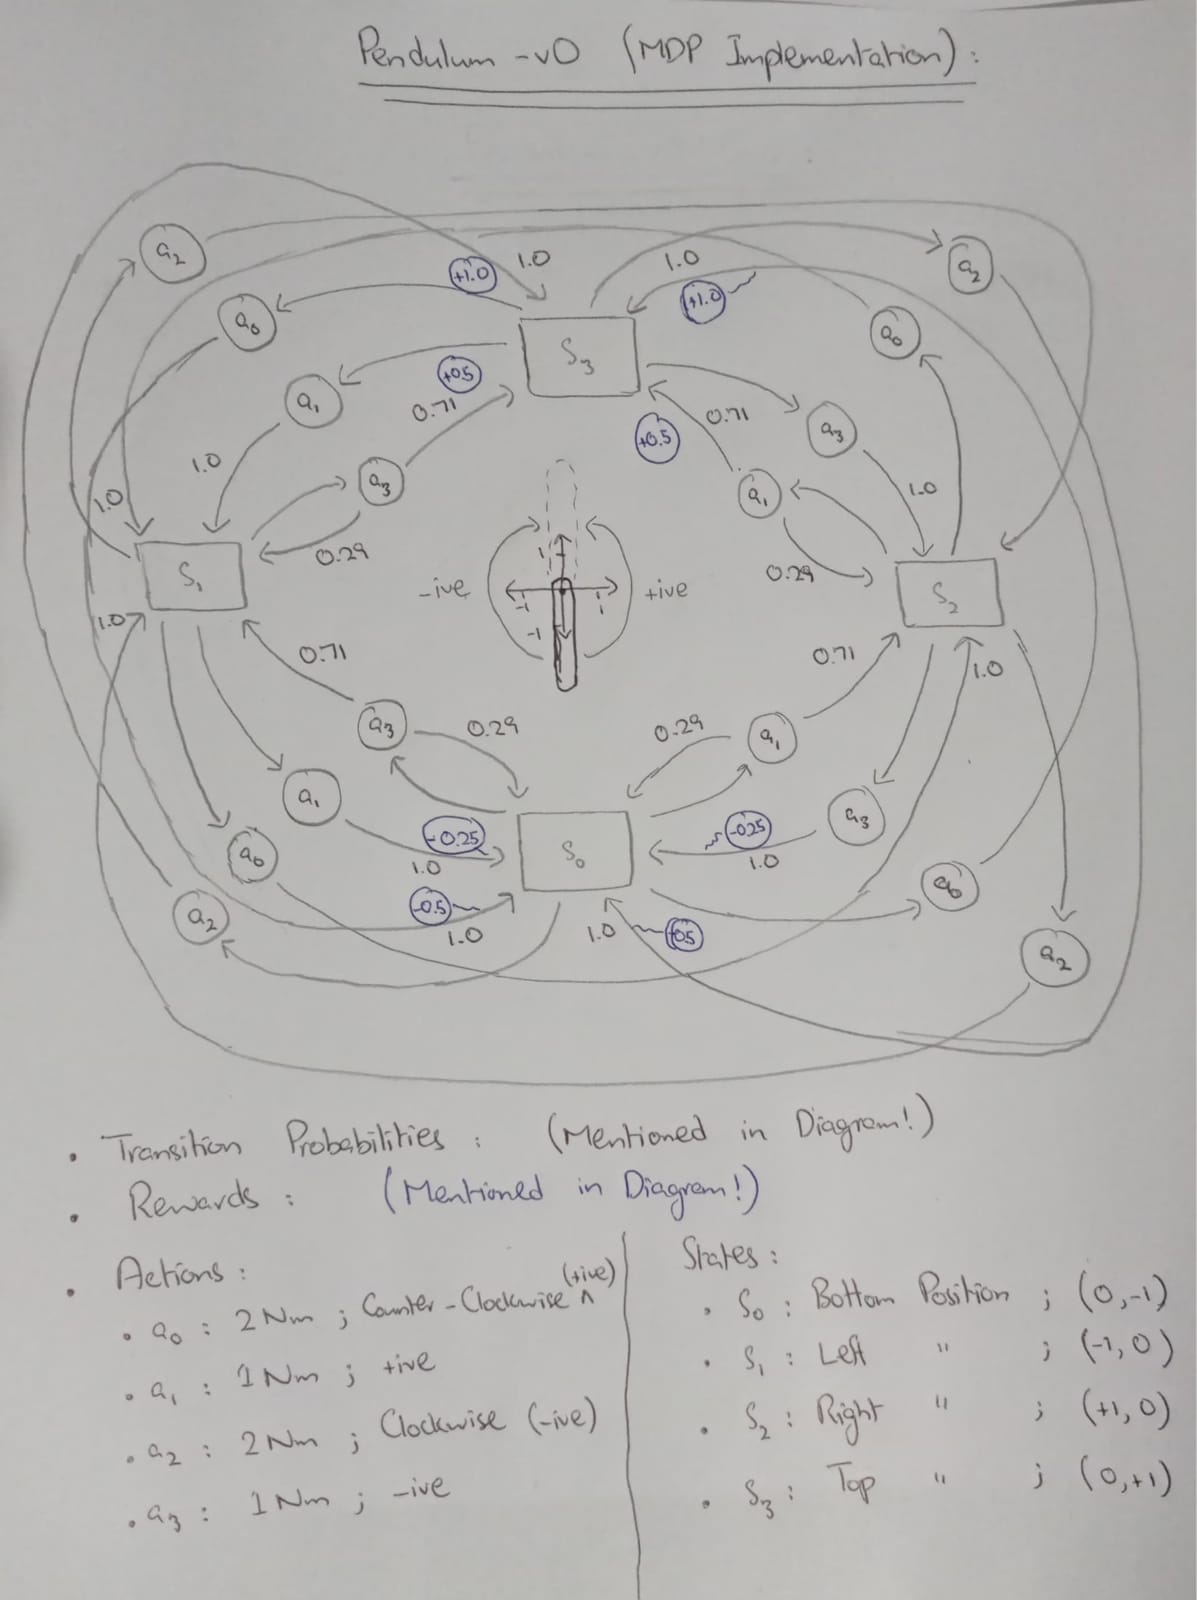 Pendulum -v0 (MDP Implementation):
a2
a2
+1.0
1.0
1.0
+1.0
a0
a0
S3
+0.5
a1
0.71
0.71
a3
+0.5
1.0
a3
a1
1.0
1.0
0.29
0.29
S1
-ive
1
-1
1
-1
+ive
S2
1.0
0.71
0.71
1.0
a3
0.29
0.29
a1
a1
-0.25
-0.25
a3
S0
1.0
1.0
a0
a0
a2
-0.5
1.0
1.0
-0.5
a2
• Transition Probabilities : (Mentioned in Diagram!)
• Rewards : (Mentioned in Diagram!)
• Actions :
• a0 : 2Nm ; Counter-Clockwise ^ (+ive)
• a1 : 1Nm ; +ive
• a2 : 2Nm ; Clockwise (-ive)
• a3 : 1Nm ; -ive
States :
• S0 : Bottom Position ; (0,-1)
• S1 : Left " ; (-1,0)
• S2 : Right " ; (+1,0)
• S3 : Top " ; (0,+1)